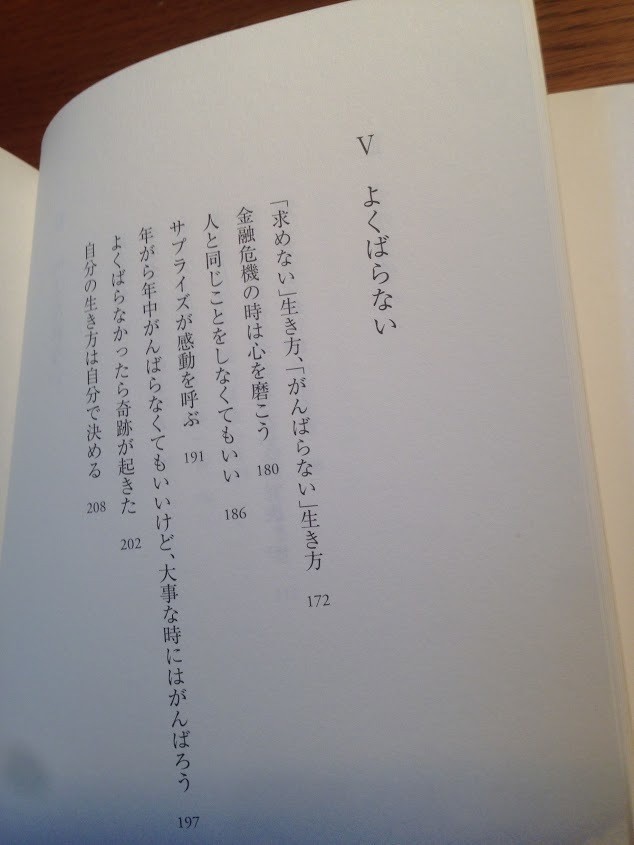 V よくばらない
「求めない」生き方、「がんばらない」生き方 172
金融危機の時は心を磨こう 180
人と同じことをしなくてもいい 186
サプライズが感動を呼ぶ 191
年がら年中がんばらなくてもいいけど、大事な時にはがんばろう 197
よくばらなかったら奇跡が起きた 202
自分の生き方は自分で決める 208